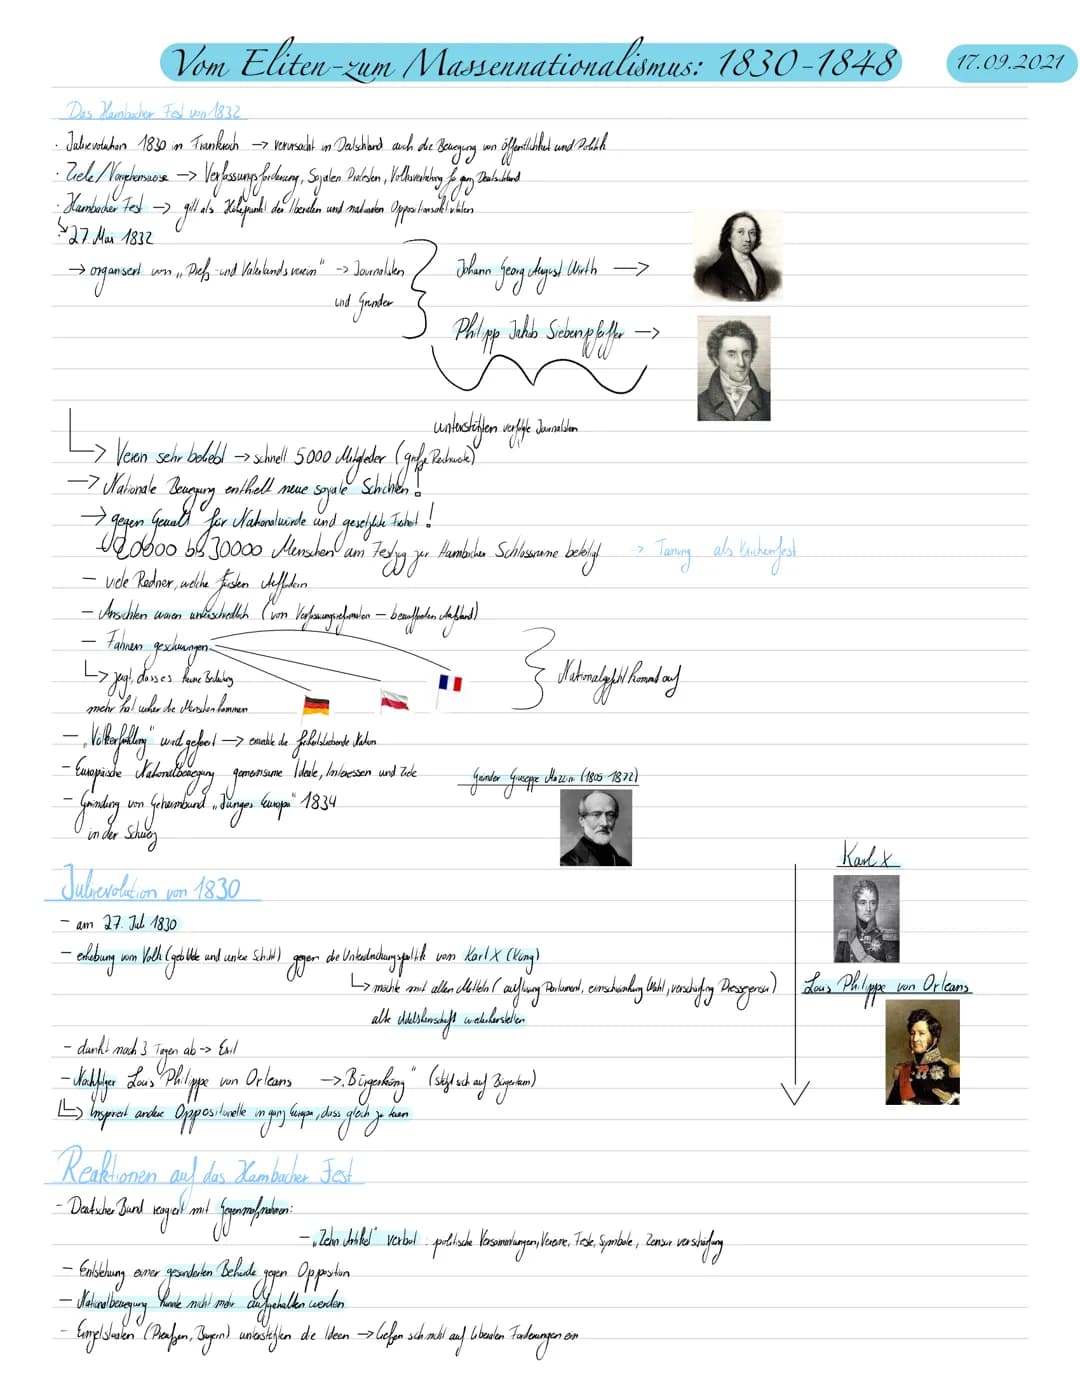 Vom Eliten-zum Massennationalismus: 1830-1848
17.09.2021
Das Hambacher Fest von 1832
· Julirevolution 1830 in Frankreich → verursacht in Deutschland auch die Bewegung von öffentlichkeit und Politik
· Ziele/Vorgehensweise → Verfassungsforderung, Sozialen Protesten, Volksvertretung für ganz Deutschland
· Hambacher Fest → gilt als Höhepunkt der liberalen und nationalen Oppositionsaktivitäten
↳ 27. Mai 1832
→ organsiert von „Preß-und Vaterlandsverein" → Journalisten
und Gründer
Johann Georg August Wirth →
Philipp Jakob Siebenpfeiffer →
unterstützten verfolgte Journalisten
↳ Verein sehr beliebt → schnell 5000 Mitglieder (große Reichweite)
→ Nationale Bewegung enthielt neue soziale Schichten!
→ gegen Gewalt für Nationalwürde und gesetzliche Freiheit!
↳ 20000 bis 30000 Menschen am Festzug zur Hambacher Schlossruine beteiligt → Tarnung als Kirchenfest
- viele Redner, welche Fürsten
- Ansichten waren unterschiedlich (von Verfassungsreformation - bewaffneten Aufstand)
- Fahnen geschwungen
↳ zeigt, dass es keine Bedeutung
mehr hat woher die Menschen kommen
Nationalgefühl kommt auf
- „Völkerfrühling" wird gefeiert → erwachte die freiheitsliebende Nation
- Europäische Nationalbewegung gemeinsame Ideale, Interessen und Ziele
- Gründung von Geheimbund „Junges Europa" 1834
in der Schweiz
Gründer Giuseppe Mazzini (1805-1872)
Julirevolution von 1830
- am 27. Juli 1830
- erhebung vom Volk (gebildete und untere Schicht) gegen die Unterdrückungspolitik von Karl X (König)
↳ möchte mit allen Mitteln (auflösung Parlament, einschränkung Wahl, verschärfung Pressezensur)
alte Adelsherrschaft wiederherstellen
- dankt nach 3 Tagen ab → Exil
- Nachfolger Louis Philippe von Orleans → „Bürgerkönig" (stützt sich auf Bürgertum)
↳ Inspiriert andere Oppositionelle in ganz Europa, dass gleich zu tuen
Karl X
Louis Philippe von Orleans
Reaktionen auf das Hambacher Fest
- Deutscher Bund reagiert mit Gegenmaßnahmen:
- „Zehn Artikel" verbot: politische Versammlungen, Vereine, Feste, Symbole, Zensur verschärfung
- Entstehung einer gesonderten Behörde gegen Opposition
- Nationalbewegung konnte nicht mehr aufgehalten werden
- Einzelstaaten (Preußen, Bayern) unterstützten die Ideen → ließen sich nicht auf liberalen Forderungen ein